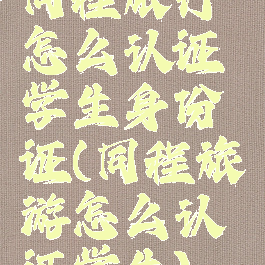 同程旅行
怎么认证
学生身份
证(同程旅
游怎么认
证学生)